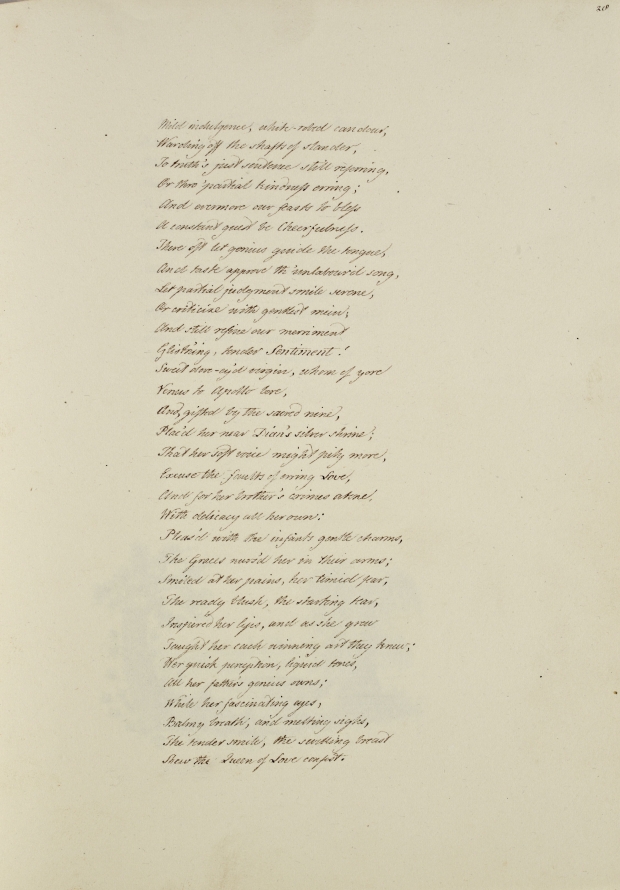 218
Mild indulgence, white-robed candour,
Warding off the shafts of slander,
To truth's just sentence still referring,
Or thro' partial kindness erring;
And evermore our feasts to bless
A constant guest be Cheerfulness.
There oft let genius guide the tongue,
And taste approve th' unlabour'd song,
Let partial judgment smile serene,
Or criticise with gentlest mien;
And still refine our merriment
Glist'ning, tender Sentiment!
Sweet dove-ey'd virgin, whom of yore
Venus to Apollo bore,
And, gifted by the sacred nine,
Plac'd her near Dian's silver shrine;
That her soft voice might pity move,
Excuse the faults of erring Love,
And for her brother's crimes atone
With delicacy all her own:
Pleas'd with the infant's gentle charms,
The Graces nurs'd her in their arms;
Smiled at her pains, her timid fear,
The ready blush, the starting tear,
Inspired her lips, and as she grew
Taught her each winning art they knew;
Her quick perception, liquid tones,
All her father's genius owns;
While her fascinating eyes,
Balmy breath, and melting sighs,
The tender smile, the swelling breast
Shew the Queen of Love confest.